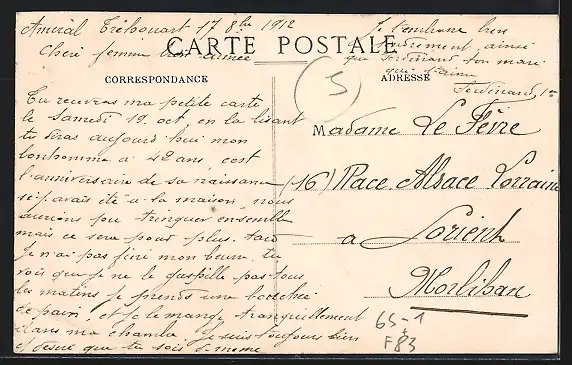 Amiral Tréhouart 17 8bre 1912
Cheri femme bien aimée
CARTE POSTALE
CORRESPONDANCE
Tu receveras ma petite carte
le Samedi 19 oct, en la lisant
tu diras aujourd'hui mon
bonhomme a 42 ans, c'est
l'anniversaire de sa naissance
si j'avais été a la maison, nous
aurions pu trinquer ensemble
mais ce sera pour plus tard
Je n'ai pas fini mon beurre, tu
vois que je ne le gaspille pas tous
les matins je prends une bouchée
de pain, et je le mange tranquillement
dans ma chambre. Je suis toujours bien
et désire que tu sois de meme
Je t'embrasse bien
tendrement ainsi
que Ferdinand ton mari
qui t'aime
Ferdinand
5
ADRESSE
Madame Le Fèvre
(16) Place Alsace Lorraine
a Lorient
Morbihan
65-1
F83